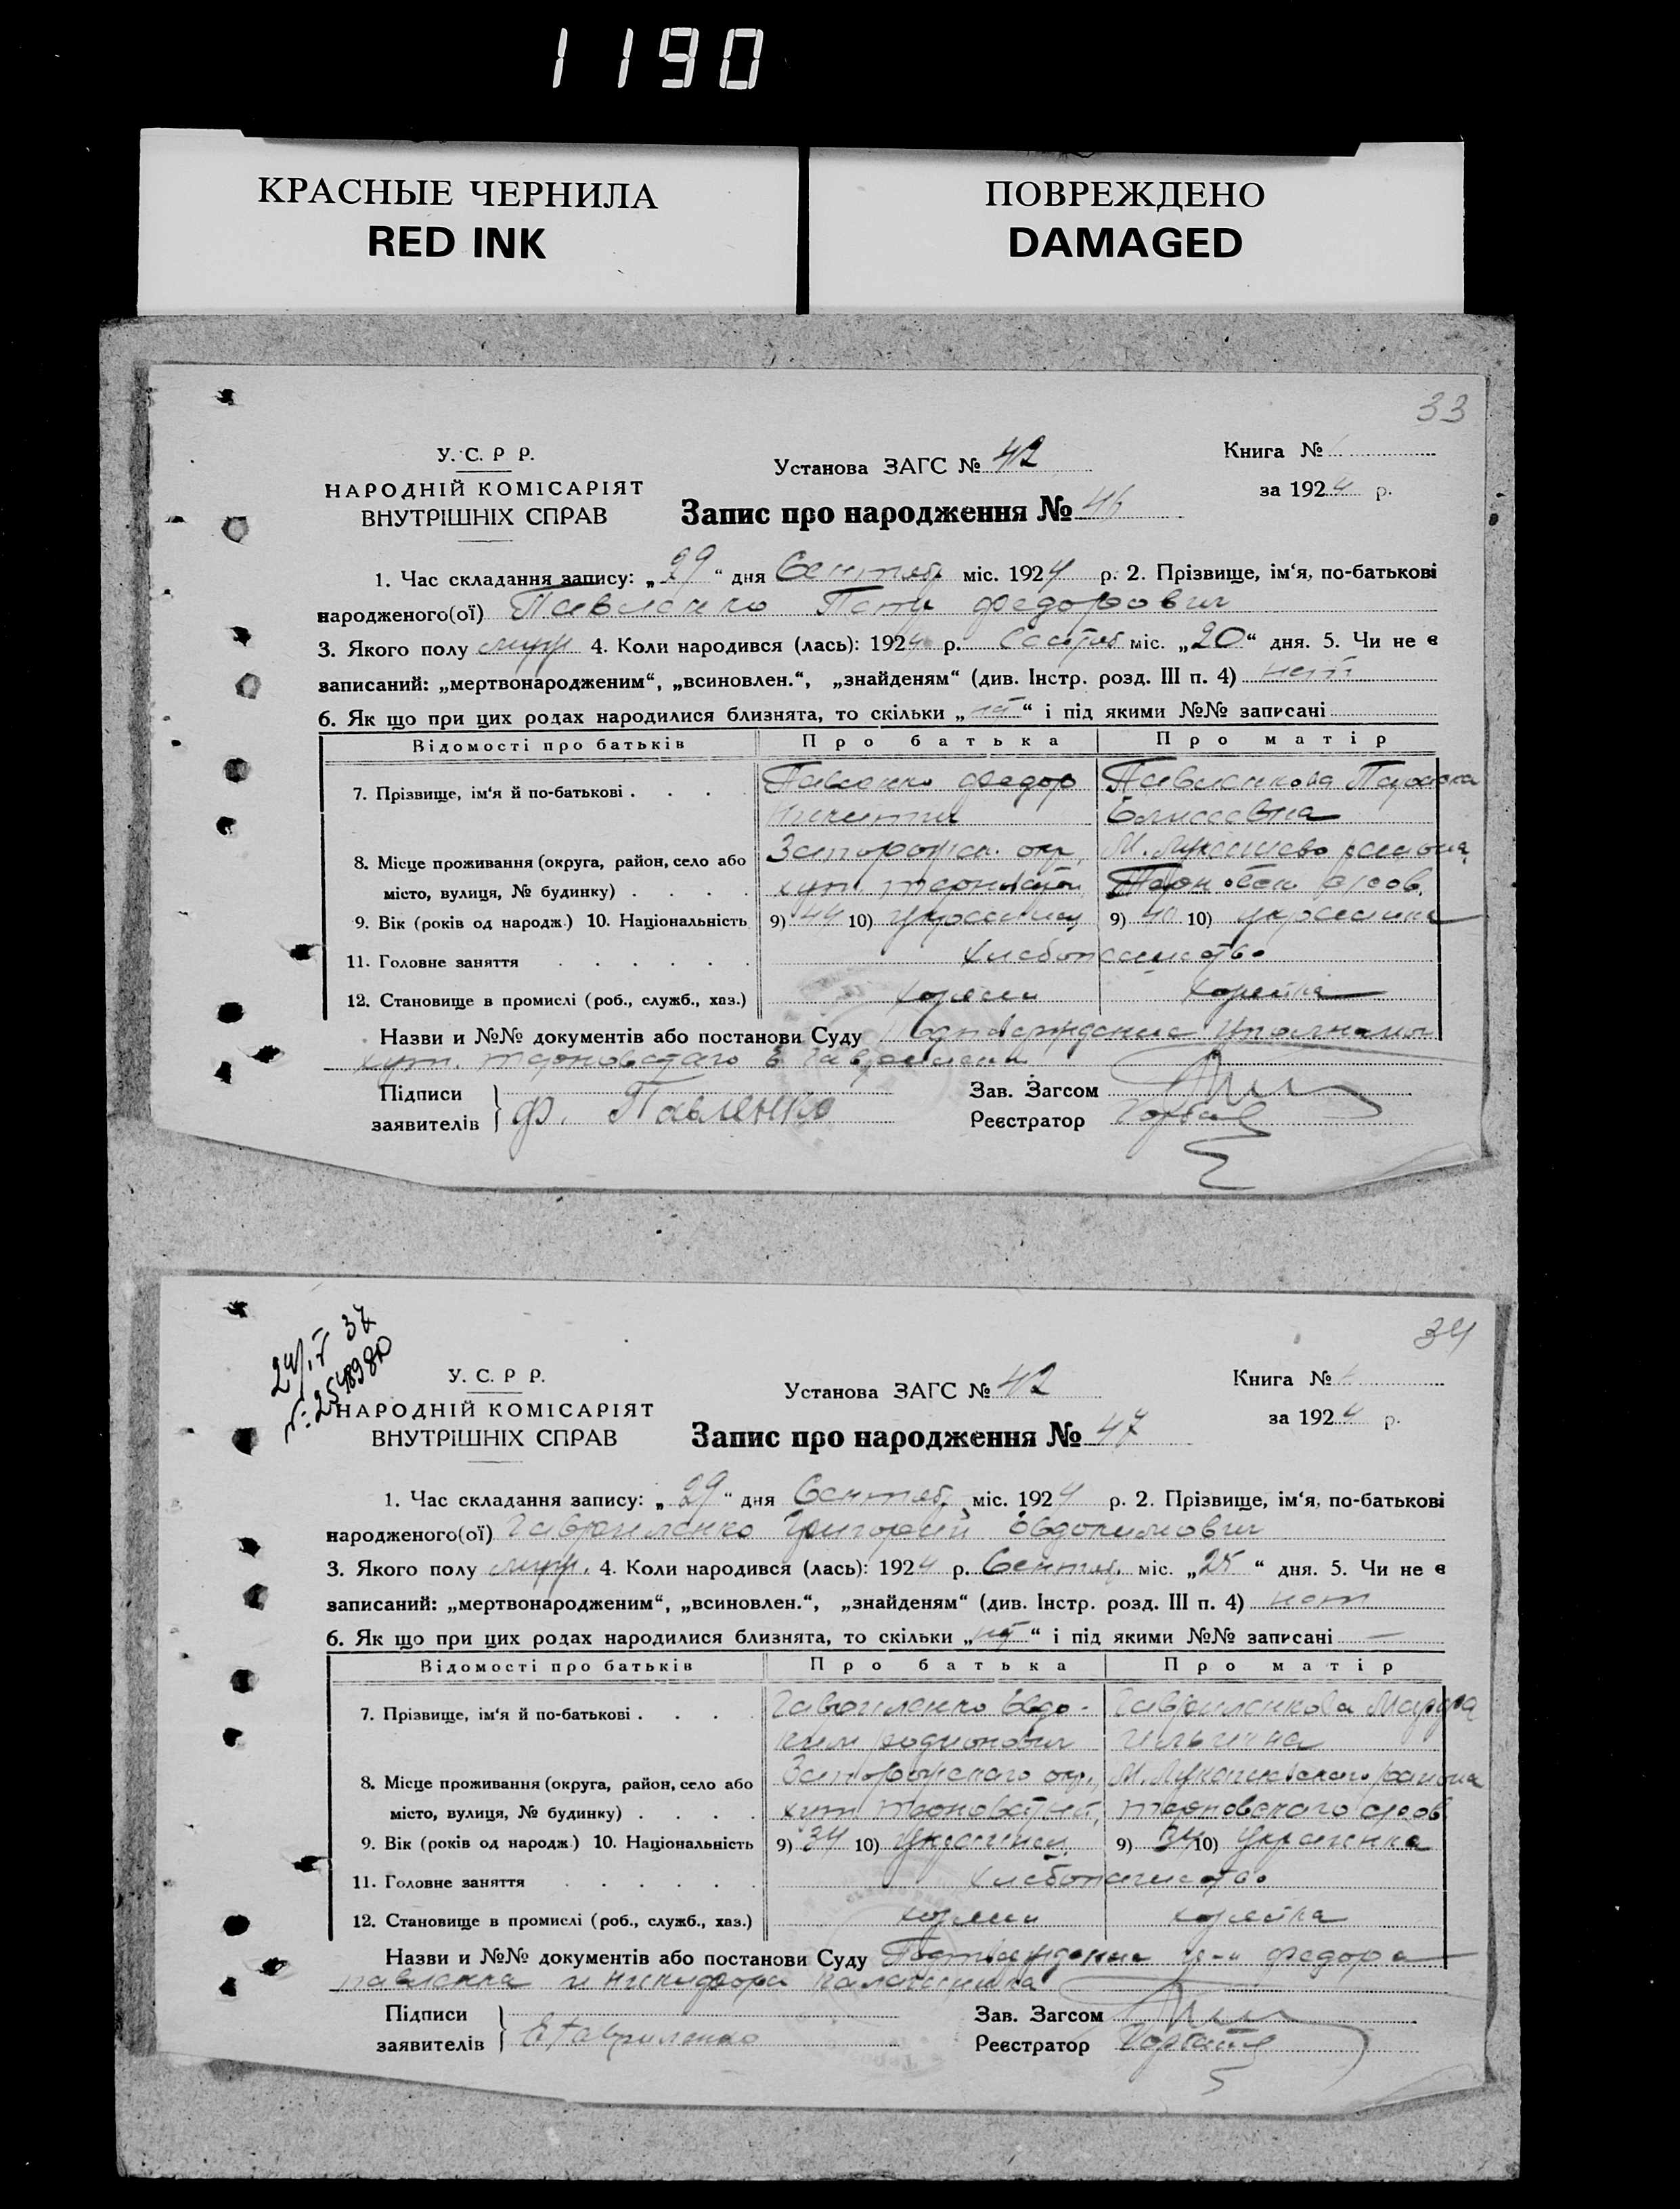 1190
КРАСНЫЕ ЧЕРНИЛА
RED INK
ПОВРЕЖДЕНО
DAMAGED
33
У. С. Р Р.
НАРОДНІЙ КОМІСАРІЯТ
ВНУТРІШНІХ СПРАВ
Установа ЗАГС № 42
Запис про народження № 46
Книга №
за 1924 р.
1. Час складання запису: „29“ дня Сентяб. міс. 1924 р. 2. Прізвище, ім‘я, по-батькові
народженого(ої) Павленко Петр Федорович
3. Якого полу муж 4. Коли народився (лась): 1924 р. Сентяб міс. „20“ дня. 5. Чи не є
записаний: „мертвонародженим“, „всиновлен.“, „знайденям“ (див. Інстр. розд. III п. 4) нет
6. Як що при цих родах народилися близнята, то скільки „нет“ і під якими №№ записані
Відомості про батьків Про батька Про матір
7. Прізвище, ім‘я й по-батькові . . . . Павленко Федор Павленкова Параска
Елисеевна
8. Місце проживання (округа, район, село або Запорожск. окр.
місто, вулиця, № будинку) . . . . хут.
9. Вік (років од народж.) 10. Національність 9) 44 10) украинец 9) 40 10) украинка
11. Головне заняття . . . . . . хлебопашество
12. Становище в промислі (роб., служб., хаз.) хозяин хозяйка
Назви и №№ документів або постанови Суду Подтверждение
хут. Терноватого
Підписи
заявителів Ф. Павленко
Зав. Загсом
Реєстратор Горбат
34
24/IV 37
№: 2548980
У. С. Р Р.
НАРОДНІЙ КОМІСАРІЯТ
ВНУТРІШНІХ СПРАВ
Установа ЗАГС № 42
Запис про народження № 47
Книга №
за 1924 р.
1. Час складання запису: „29“ дня Сентяб. міс. 1924 р. 2. Прізвище, ім‘я, по-батькові
народженого(ої) Гавриленко Григорий Евдокимович
3. Якого полу муж. 4. Коли народився (лась): 1924 р. Сентяб. міс. „25“ дня. 5. Чи не є
записаний: „мертвонародженим“, „всиновлен.“, „знайденям“ (див. Інстр. розд. III п. 4) нет
6. Як що при цих родах народилися близнята, то скільки „нет“ і під якими №№ записані —
Відомості про батьків Про батька Про матір
7. Прізвище, ім‘я й по-батькові . . . . Гавриленко Евдо- Гавриленкова
ким Родионович Ильична
8. Місце проживання (округа, район, село або Запорожского окр., М. Лукашевского района
місто, вулиця, № будинку) . . . . хут.
9. Вік (років од народж.) 10. Національність 9) 34 10) украинец 9) 34 10) украинка
11. Головне заняття . . . . . . хлебопашество
12. Становище в промислі (роб., служб., хаз.) хозяин хозяйка
Назви и №№ документів або постанови Суду Подтверждение гр-н Федора
Павленка и Никифора
Підписи
заявителів Е. Гавриленко
Зав. Загсом
Реєстратор Горбат